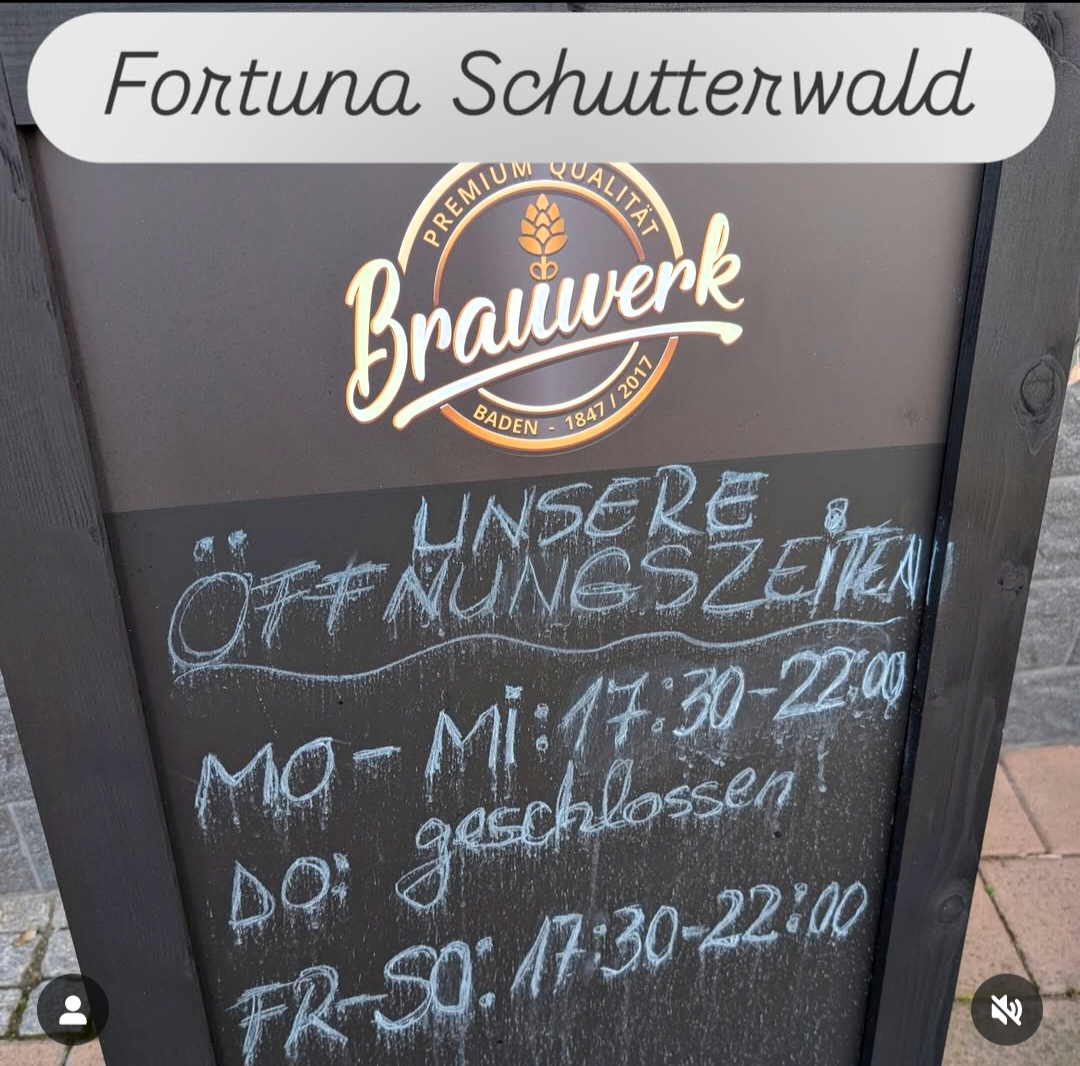 Fortuna Schutterwald
PREMIUM QUALITÄT
Brauwerk
BADEN - 1847 / 2017
UNSERE
ÖFFNUNGSZEITEN
MO - Mi: 17:30-22:00
DO: geschlossen
FR-SO: 17:30-22:00